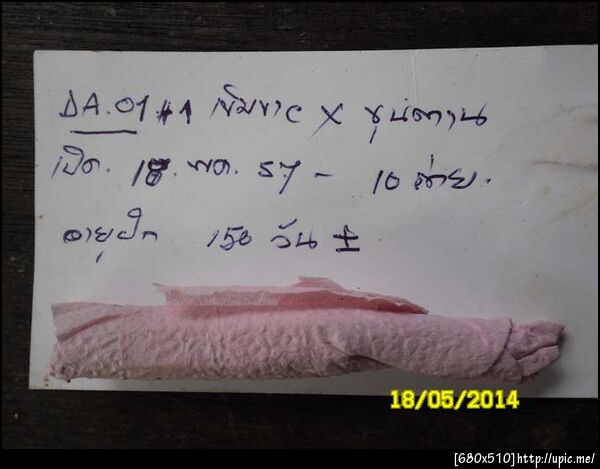 DA.01 เข็มขาว X ขุนตาน
เปิด. 18. พค. 57 - 10 ถ่าย.
อายุฝัก 150 วัน ±
18/05/2014
[680x510]http://upic.me/